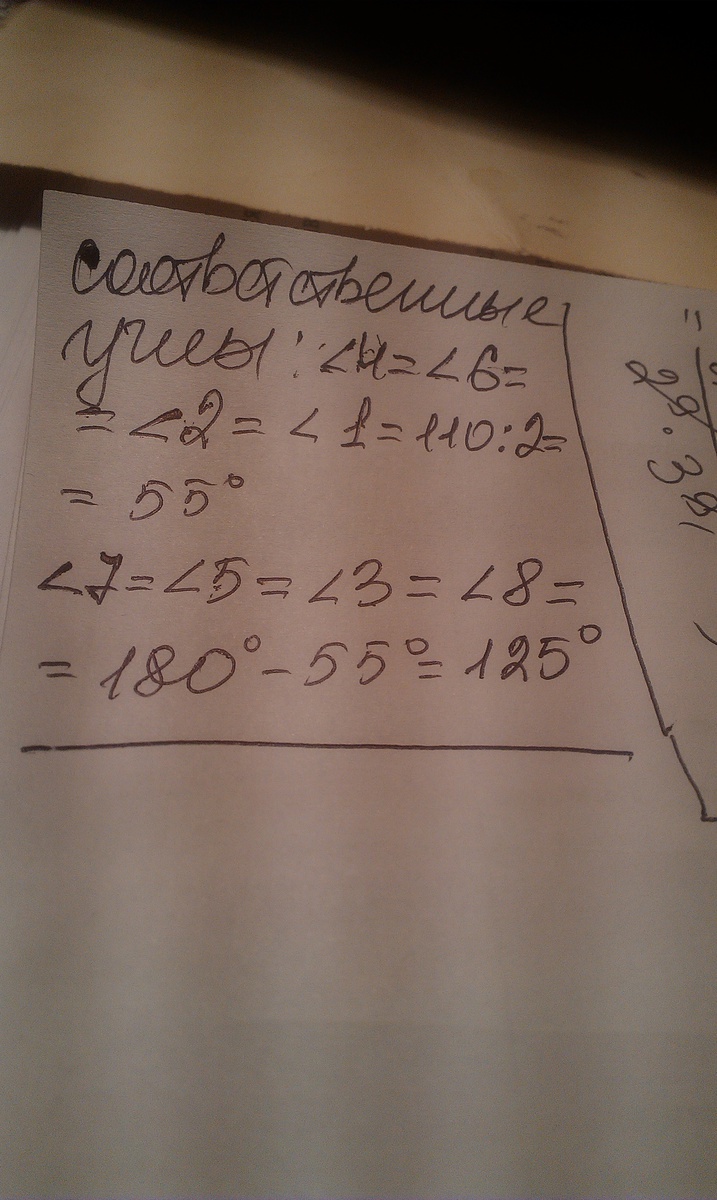 соответственные
углы: <4=<6=
= <2 = <1 = 110:2=
= 55°
<7=<5=<3=<8=
= 180°-55°=125°